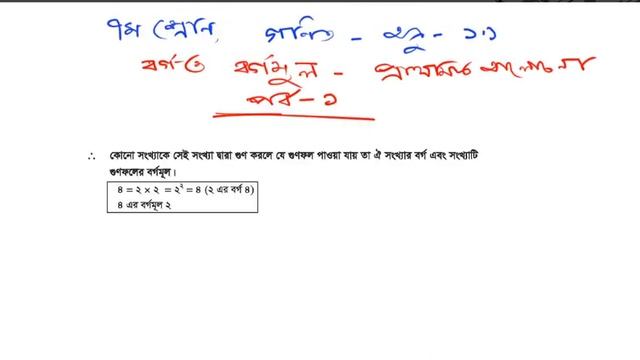 ৭ম শ্রেণি, গণিত - অনু - ১.১
বর্গ ও বর্গমূল - প্রাথমিক আলোচনা
পর্ব - ১
∴ কোনো সংখ্যাকে সেই সংখ্যা দ্বারা গুণ করলে যে গুণফল পাওয়া যায় তা ঐ সংখ্যার বর্গ এবং সংখ্যাটি
গুণফলের বর্গমূল।
৪ = ২ × ২ = ২² = ৪ (২ এর বর্গ ৪)
৪ এর বর্গমূল ২